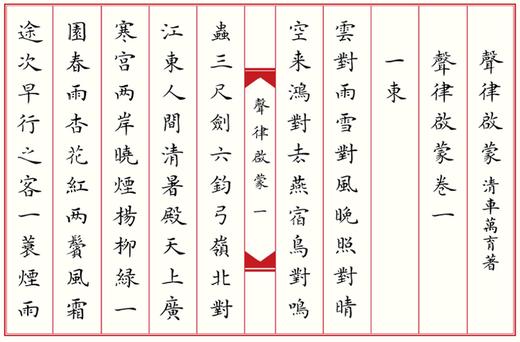 聲律啟蒙 清車萬育著
聲律啟蒙卷一
一東
雲對雨雪對風晚照對晴
空来鴻對去燕宿鳥對鳴
聲律啟蒙 一
蟲三尺劍六鈞弓嶺北對
江東人間清暑殿天上廣
寒宫两岸曉煙楊柳綠一
園春雨杏花紅两鬢風霜
途次早行之客一蓑煙雨